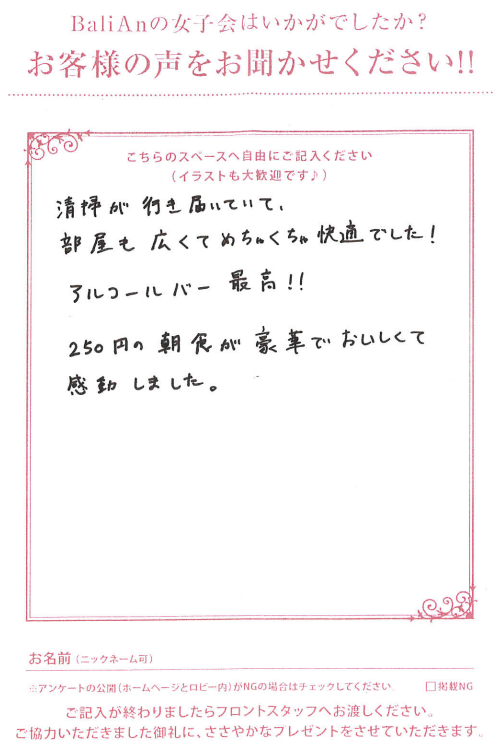 BaliAnの女子会はいかがでしたか?
お客様の声をお聞かせください!!
こちらのスペースへ自由にご記入ください
(イラストも大歓迎です♪)
清掃が行き届いていて、
部屋も広くてめちゃくちゃ快適でした!
アルコールバー最高!!
250円の朝食が豪華でおいしくて
感動しました。
お名前(ニックネーム可)
※アンケートの公開(ホームページとロビー内)がNGの場合はチェックしてください。 □掲載NG
ご記入が終わりましたらフロントスタッフへお渡しください。
ご協力いただきました御礼に、ささやかなプレゼントをさせていただきます。